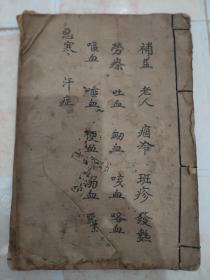 補益 老人 痼冷 斑疹 發熱
勞瘵 吐血 衄血 咳血 咯血
嘔血 唾血 便血 溺血
惡寒 汗症